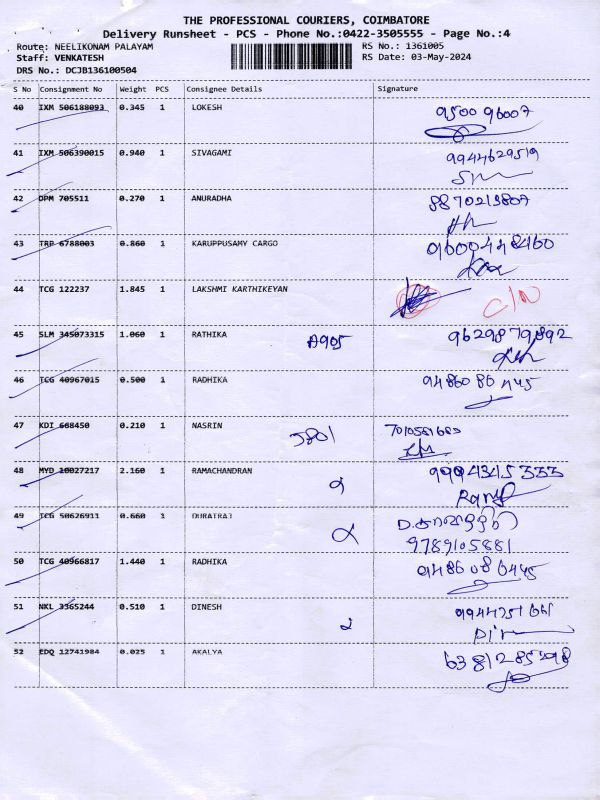 THE PROFESSIONAL COURIERS, COIMBATORE
Delivery Runsheet - PCS - Phone No.:0422-3505555 - Page No.:4
Route: NEELIKONAM PALAYAM RS No.: 1361005
Staff: VENKATESH RS Date: 03-May-2024
DRS No.: DCJB136100504
S No Consignment No Weight PCS Consignee Details Signature
40 IXM 506188093 0.345 1 LOKESH 9500 96007
41 IXM 506390015 0.940 1 SIVAGAMI 9944629519
42 DPM 705511 0.270 1 ANURADHA 8870213807
43 TRP 6788003 0.860 1 KARUPPUSAMY CARGO 9600448460
44 TCG 122237 1.845 1 LAKSHMI KARTHIKEYAN C/N
45 SLM 345073315 1.060 1 RATHIKA A905 9629879892
46 TCG 40967015 0.500 1 RADHIKA 9486086445
47 KDI 668450 0.210 1 NASRIN
48 MYD 10027217 2.160 1 RAMACHANDRAN 9994345555
49 TCG 50626911 0.660 1 DURAIRAJ
9789105881
50 TCG 40966817 1.440 1 RADHIKA 9486086445
51 NKL 3365244 0.510 1 DINESH
52 EDQ 12741984 0.025 1 AKALYA 6381285398